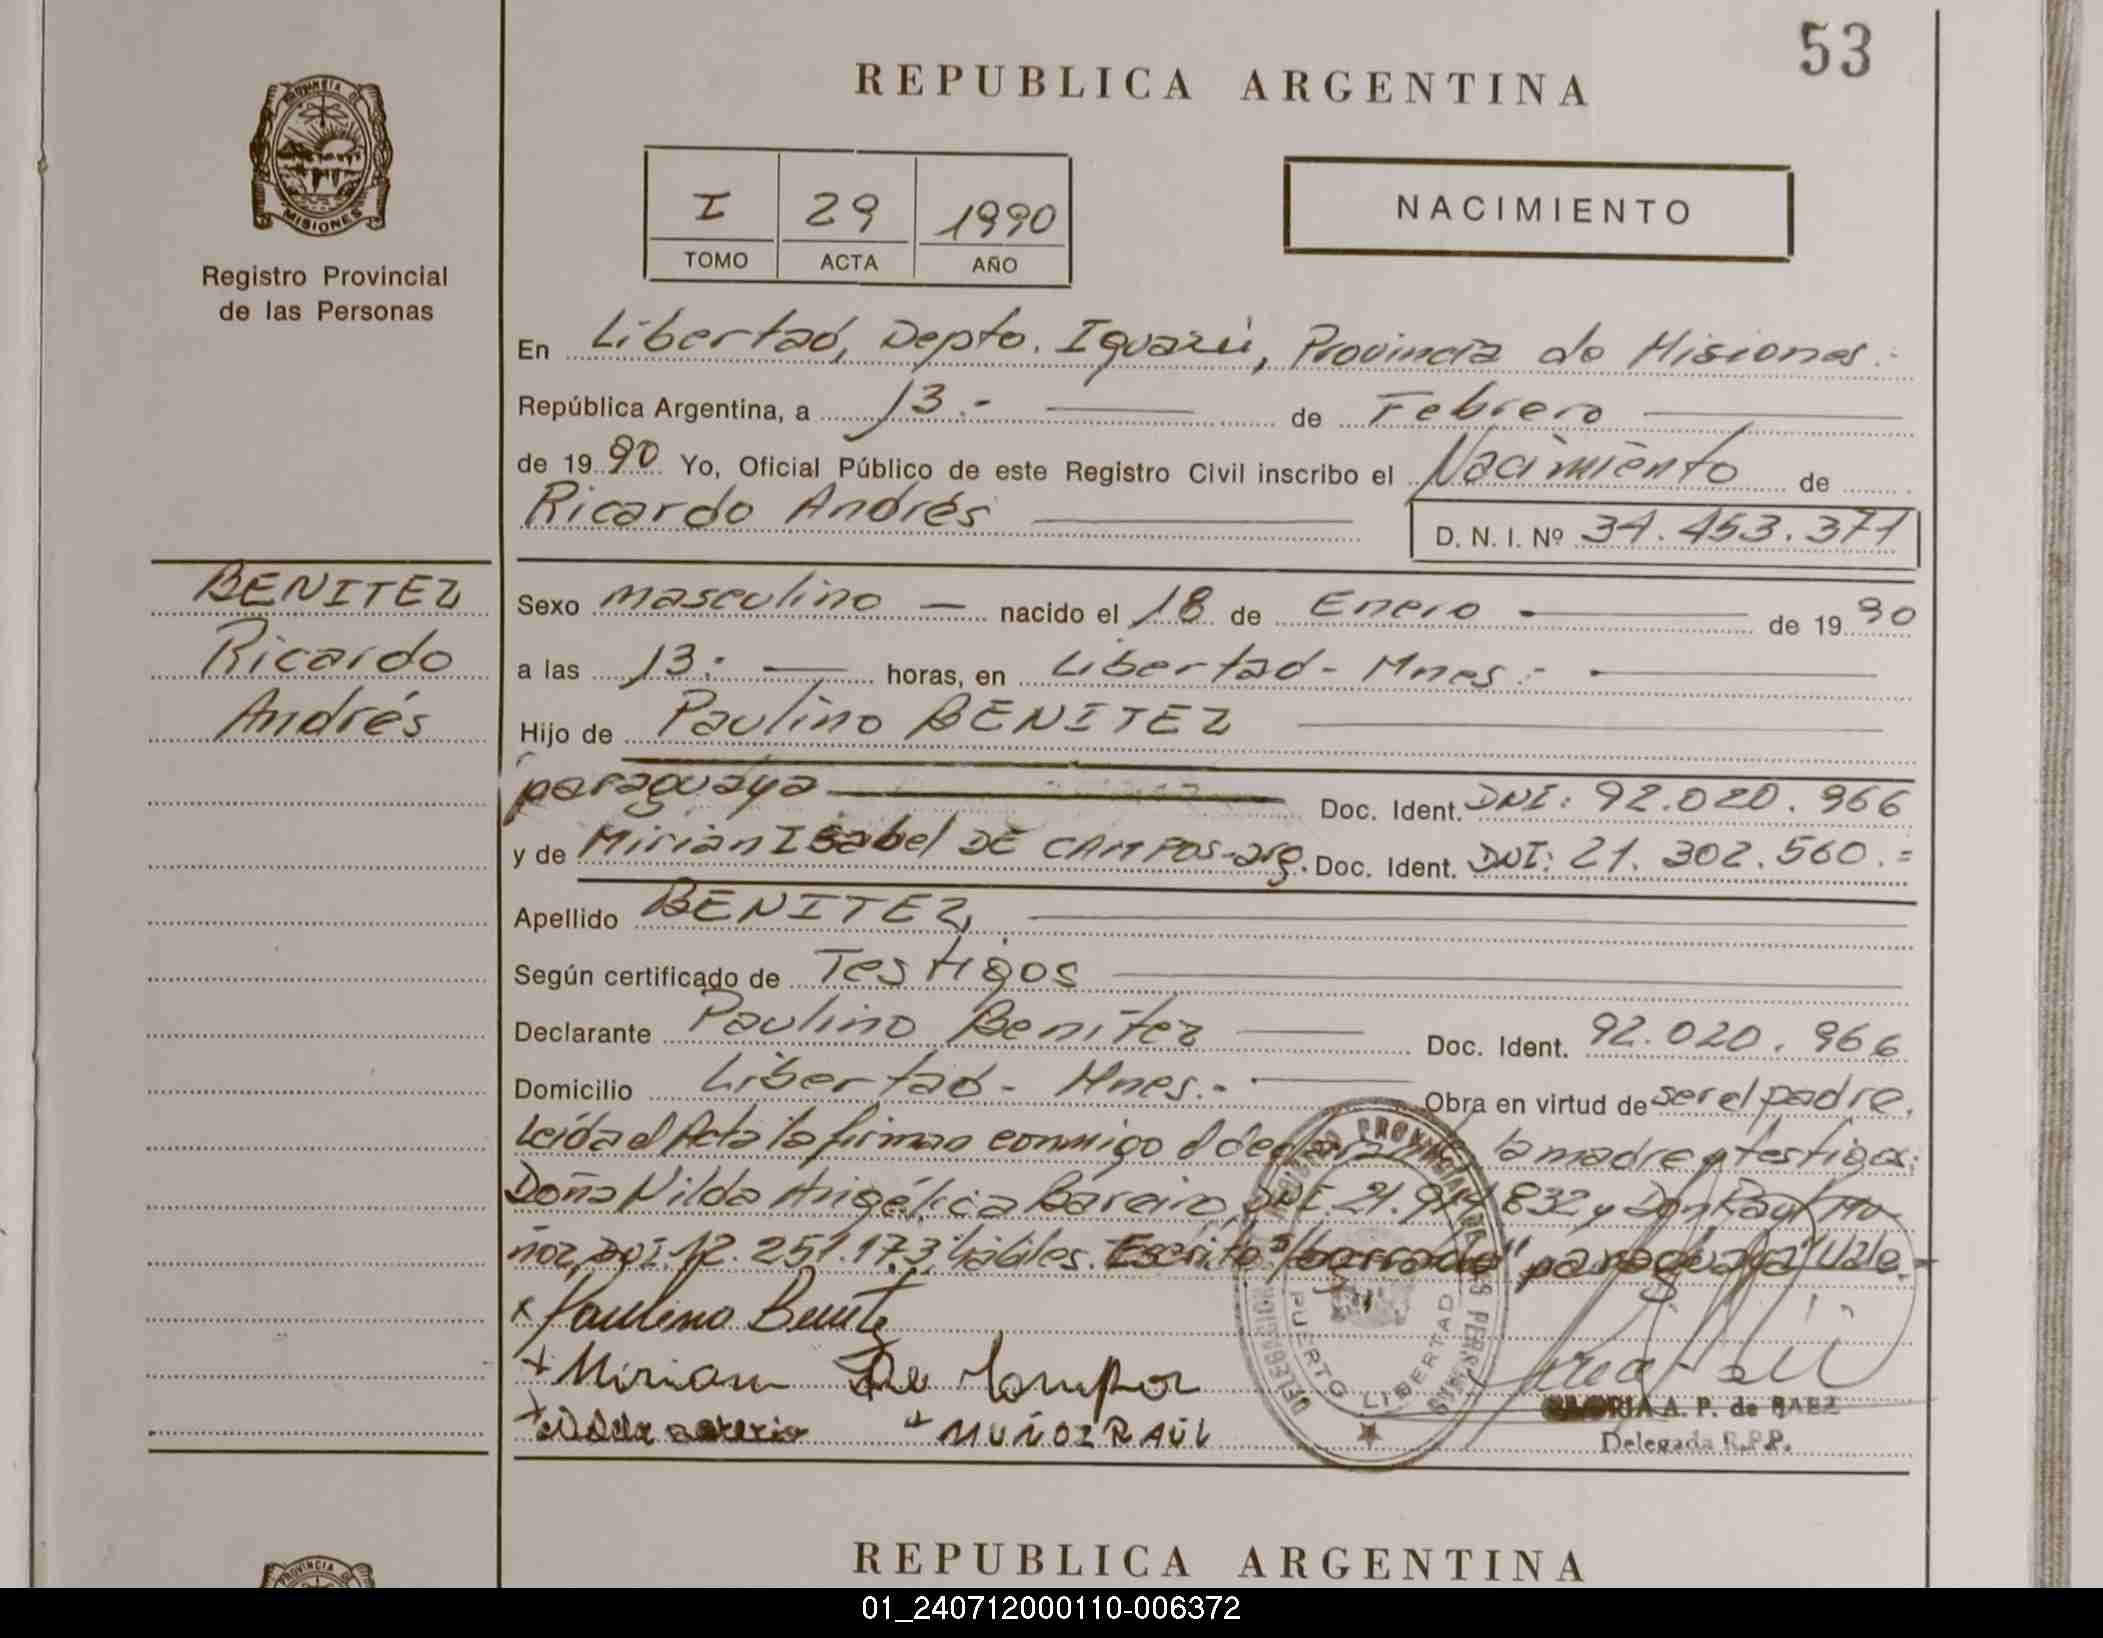 53
REPUBLICA ARGENTINA
PROVINCIA DE
MISIONES
Registro Provincial
de las Personas
I 29 1990
TOMO ACTA AÑO
NACIMIENTO
En Libertad, Depto. Iguazú, Provincia de Misiones.-
República Argentina, a 13.- de Febrero
de 1990 Yo, Oficial Público de este Registro Civil inscribo el Nacimiento de
Ricardo Andrés
D. N. I. Nº 34.453.371
BENITEZ
Ricardo
Andrés
Sexo masculino nacido el 18 de Enero de 1990
a las 13: horas, en Libertad - Mnes:-
Hijo de Paulino BENITEZ
paraguaya Doc. Ident. DNI: 92.020.966
y de Mirian Isabel DE CAMPOS-arg. Doc. Ident. DNI: 21.302.560.=
Apellido BENITEZ
Según certificado de Testigos
Declarante Paulino Benitez Doc. Ident. 92.020.966
Domicilio Libertad - Mnes.- Obra en virtud de ser el padre.
Leída el Acta la firman conmigo el declarante, la madre y testigos:
Doña Nilda Angélica Bareiro, DNI. 21. 832 y Don Raul Mu-
ñoz, DNI. 12.251.173, hábiles. Escrito s/borrado "paraguaya" Vale.-
x Paulino Benitez
+ Miriam De Campos
+ MUÑOZ RAÚL
PUERTO LIBERTAD
A. P. de BAEZ
Delegada R.P.P.
REPUBLICA ARGENTINA
PROVINCIA DE
01_240712000110-006372